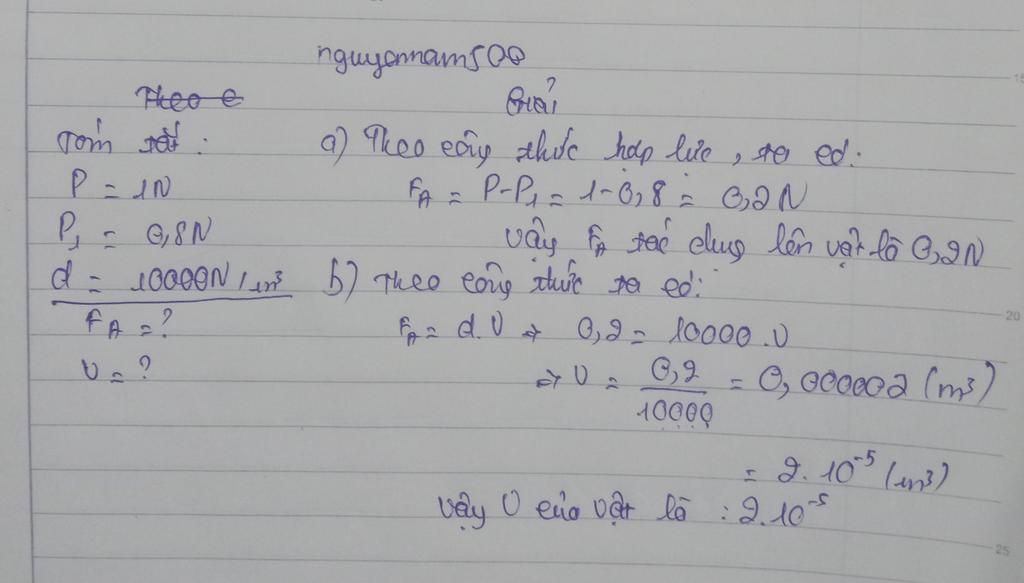 nguyennam500
Theo c
Giải
Tóm tắt :
a) Theo công thức hợp lực, ta có:
P = 1N
F_A = P-P₁ = 1-0,8 = 0,2N
P₁ = 0,8N
Vậy F_A tác dụng lên vật là 0,2N
d = 10000N/m³
b) Theo công thức ta có:
F_A = ?
F_A = d.V → 0,2 = 10000.V
V = ?
→ V = 0,2/10000 = 0,000002 (m³)
= 2.10⁻⁵ (m³)
Vậy V của vật là : 2.10⁻⁵
15
20
25